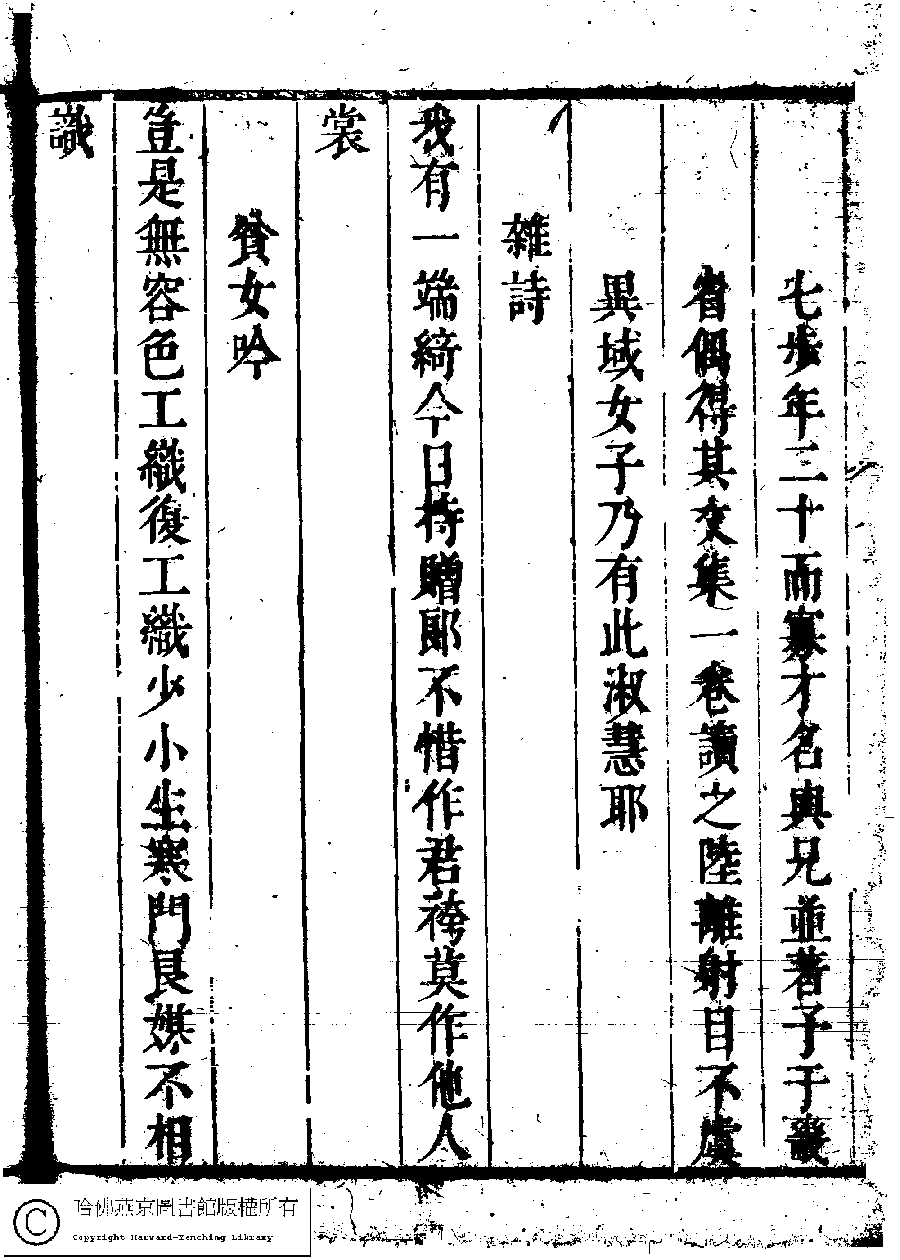 七步年二十而寡才名與兄並著予于畿
省偶得其文集一卷讀之陸離射目不虞
異域女子乃有此淑慧耶
雜詩
我有一端綺今日持贈郎不惜作君袴莫作他人
裳
貧女吟
豈是無容色工織復工織少小生寒門良媒不相
識
哈佛燕京圖書館版權所有
Copyright Harvard-Yenching Library